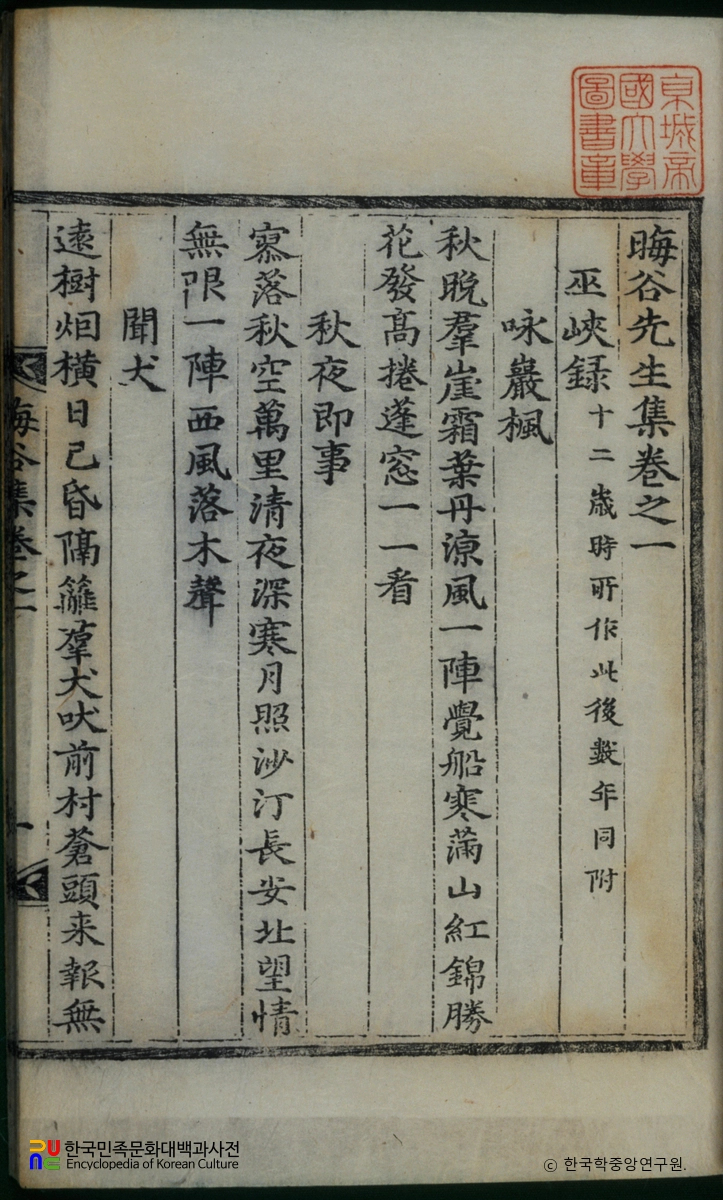 京城帝
國大學
圖書章
晦谷先生集卷之一
巫峽録十二歲時所作此後數年同附
咏巖楓
秋晩羣崖霜葉丹涼風一陣覺船寒滿山紅錦勝
花發髙捲蓬窓一一看
秋夜即事
寥落秋空萬里清夜深寒月照沙汀長安北望情
無限一陣西風落木聲
聞犬
遠樹烟橫日已昏隔籬羣犬吠前村蒼頭来報無
晦谷集卷之一
一
한국민족문화대백과사전
Encyclopedia of Korean Culture
ⓒ 한국학중앙연구원.